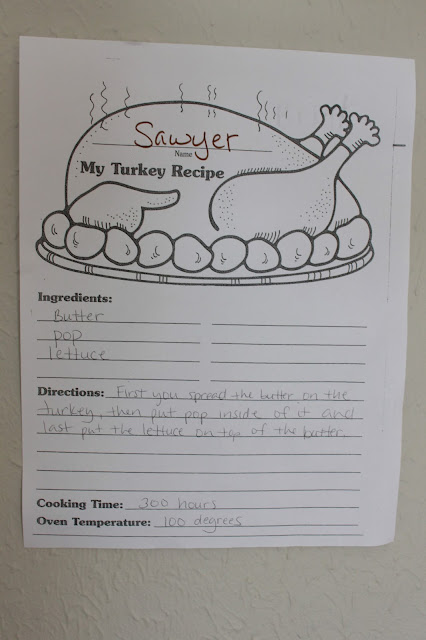 Sawyer
Name
My Turkey Recipe
Ingredients:
Butter
pop
lettuce
Directions: First you spread the butter on the
turkey, then put pop inside of it and
last put the lettuce on top of the butter.
Cooking Time: 300 hours
Oven Temperature: 100 degrees